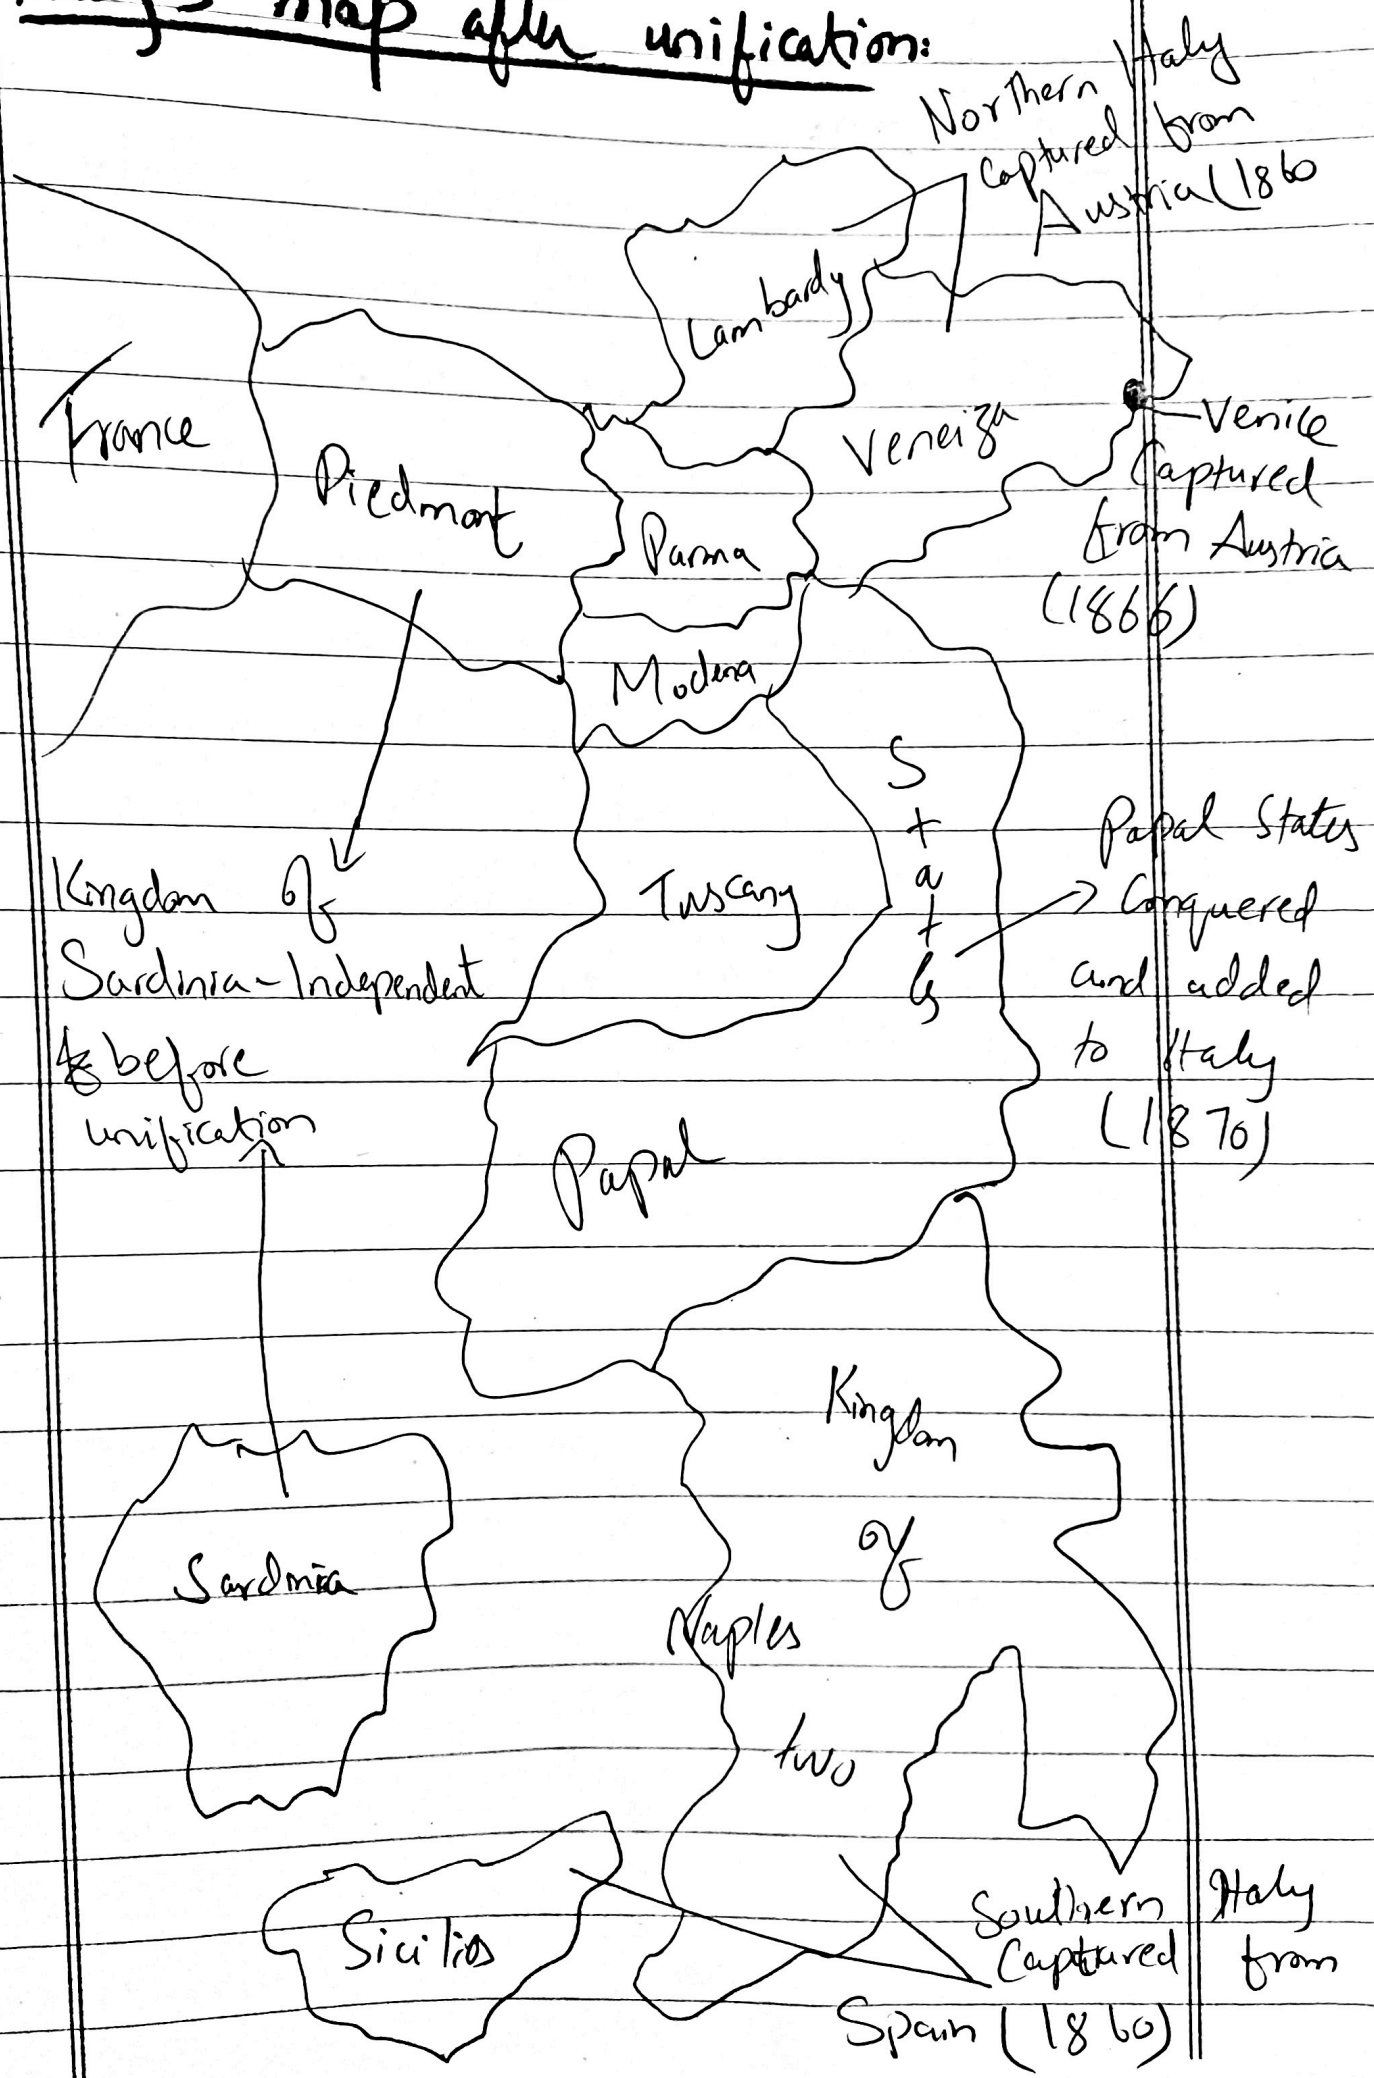 map after unification:
Northern Italy
Captured from
Austria (1860
Lambardy
France
Piedmont
Veneiza
Venice
Captured
from Austria
(1866)
Parma
Modena
S
t
a
t
es
Papal States
Conquered
and added
to Italy
(1870)
Tuscany
Kingdom of
Sardinia - Independent
before
unification
Papal
Kingdom
of
Naples
two
Sardinia
Sicilies
Southern Italy
Captured from
Spain (1860)